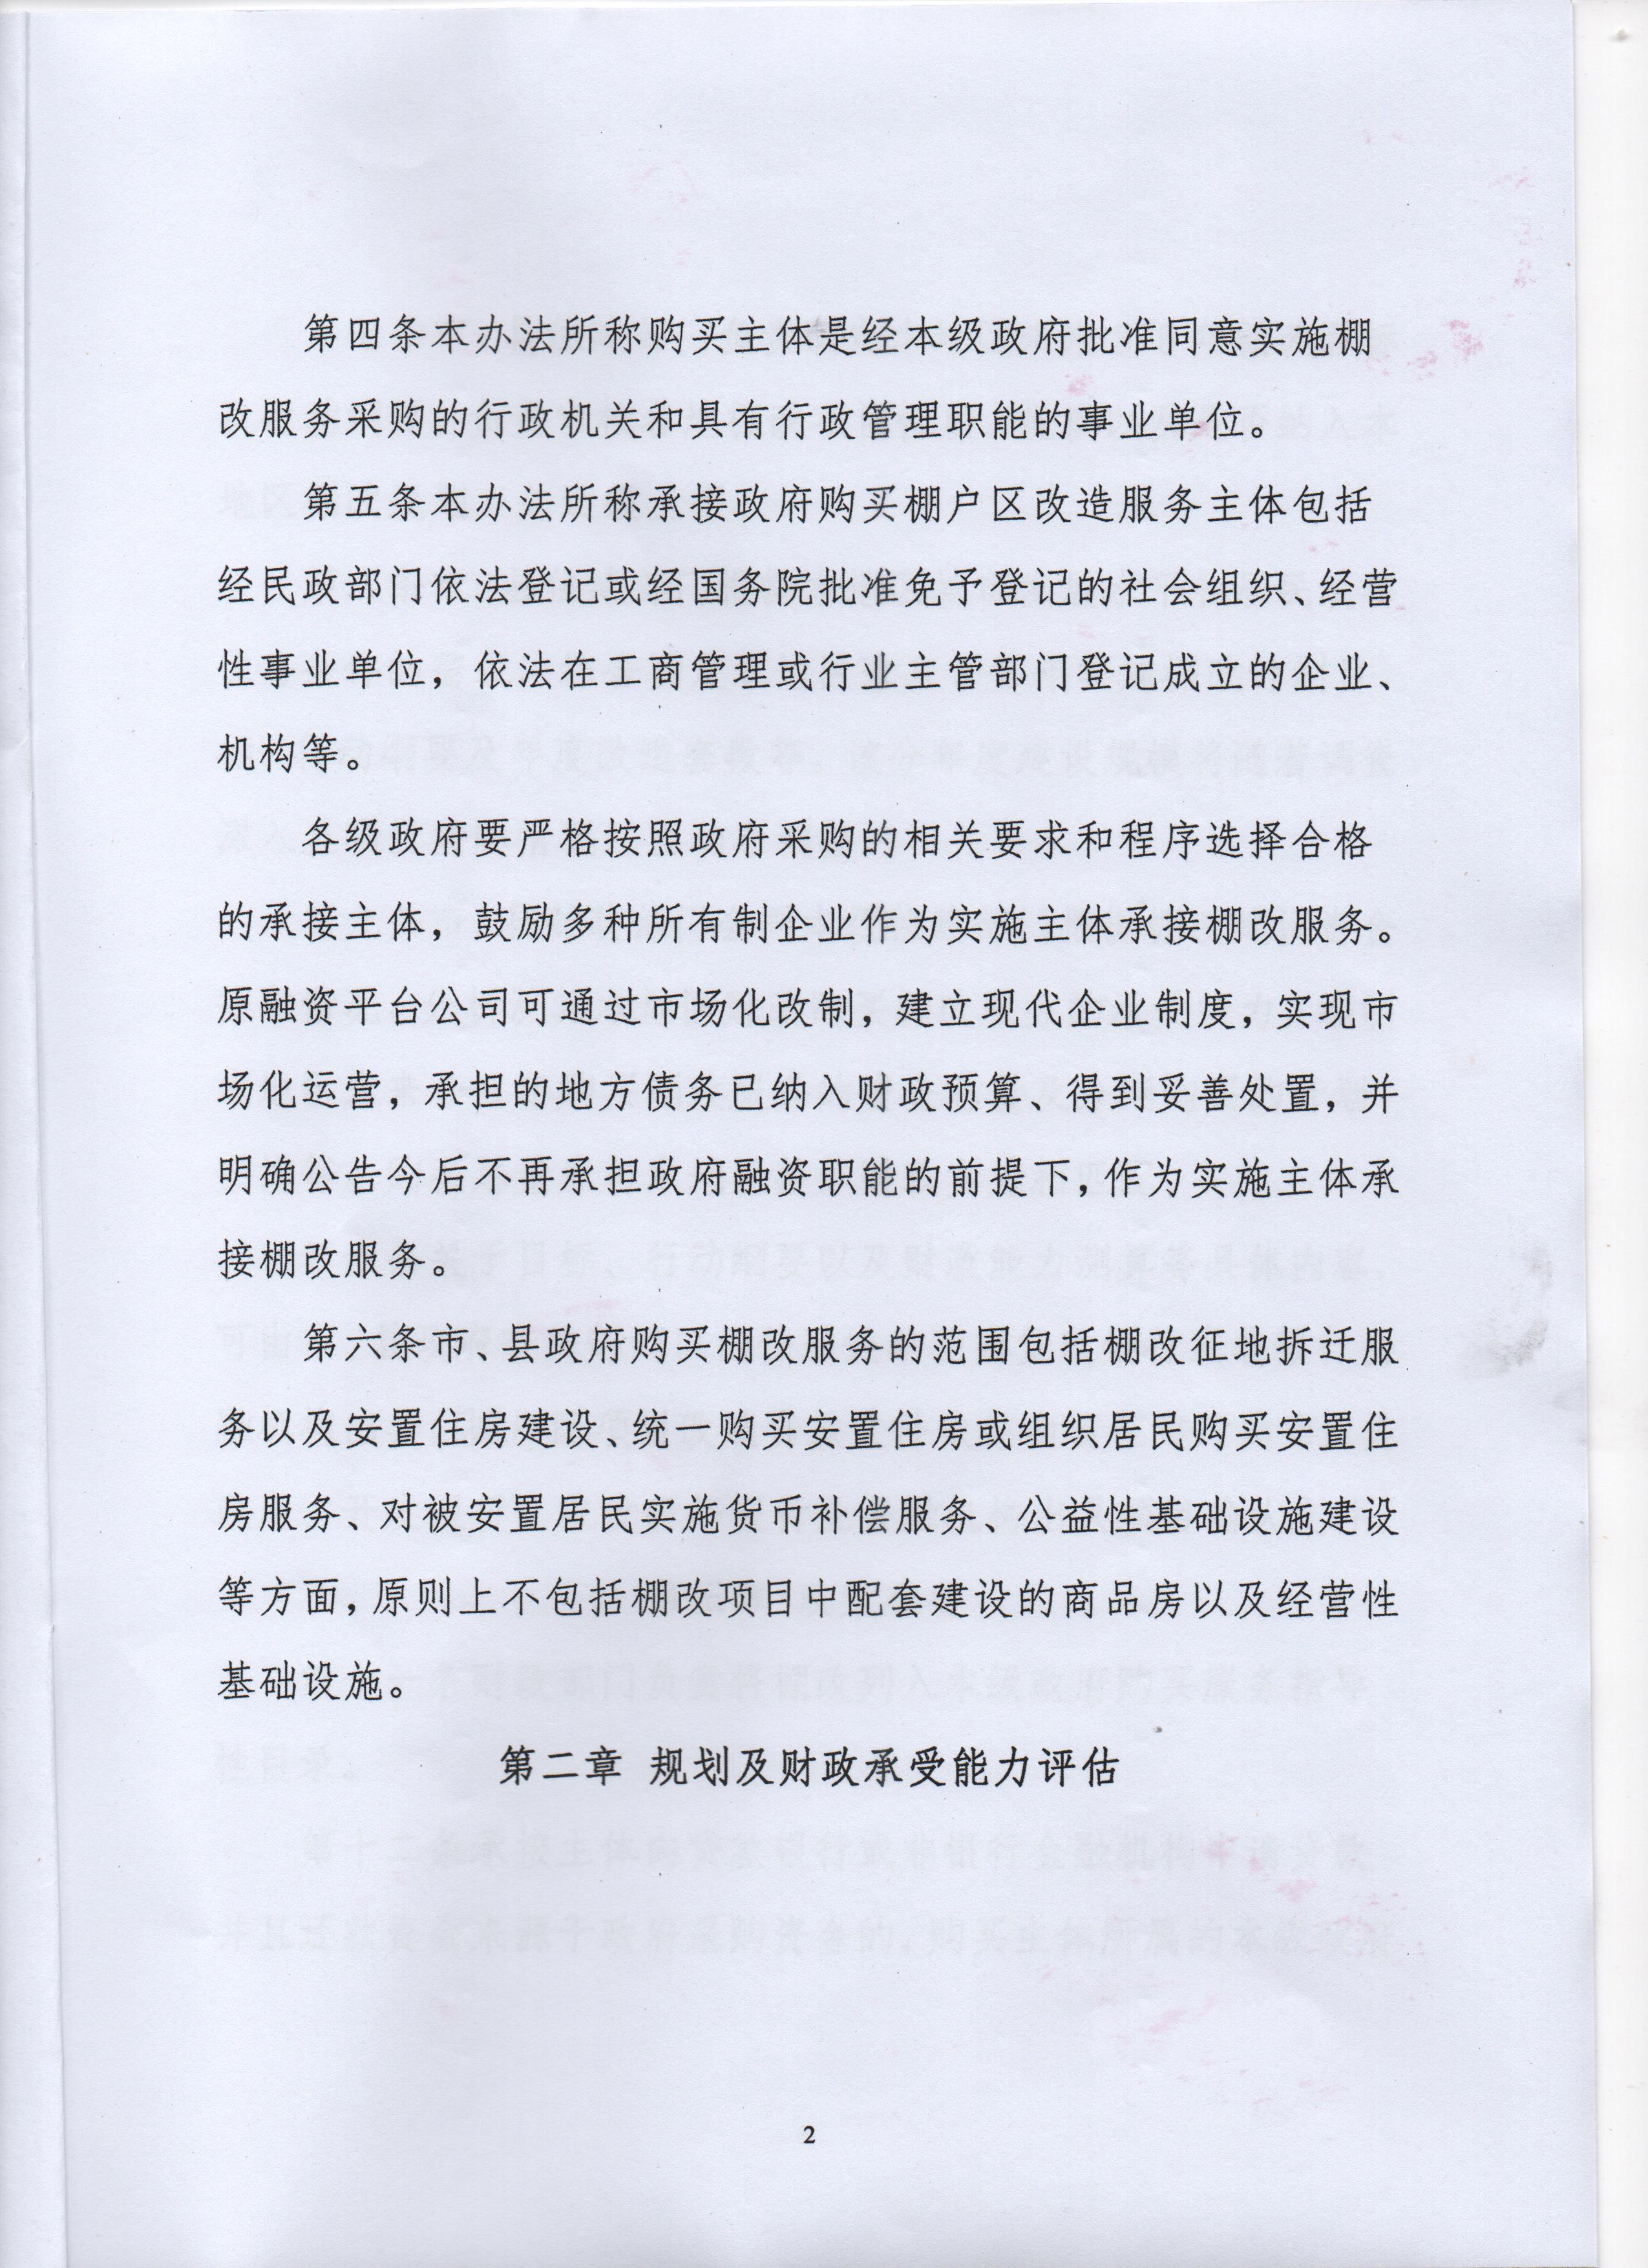 第四条本办法所称购买主体是经本级政府批准同意实施棚
改服务采购的行政机关和具有行政管理职能的事业单位。
第五条本办法所称承接政府购买棚户区改造服务主体包括
经民政部门依法登记或经国务院批准免予登记的社会组织、经营
性事业单位，依法在工商管理或行业主管部门登记成立的企业、
机构等。
各级政府要严格按照政府采购的相关要求和程序选择合格
的承接主体，鼓励多种所有制企业作为实施主体承接棚改服务。
原融资平台公司可通过市场化改制，建立现代企业制度，实现市
场化运营，承担的地方债务已纳入财政预算、得到妥善处置，并
明确公告今后不再承担政府融资职能的前提下，作为实施主体承
接棚改服务。
第六条市、县政府购买棚改服务的范围包括棚改征地拆迁服
务以及安置住房建设、统一购买安置住房或组织居民购买安置住
房服务、对被安置居民实施货币补偿服务、公益性基础设施建设
等方面，原则上不包括棚改项目中配套建设的商品房以及经营性
基础设施。
第二章 规划及财政承受能力评估
2